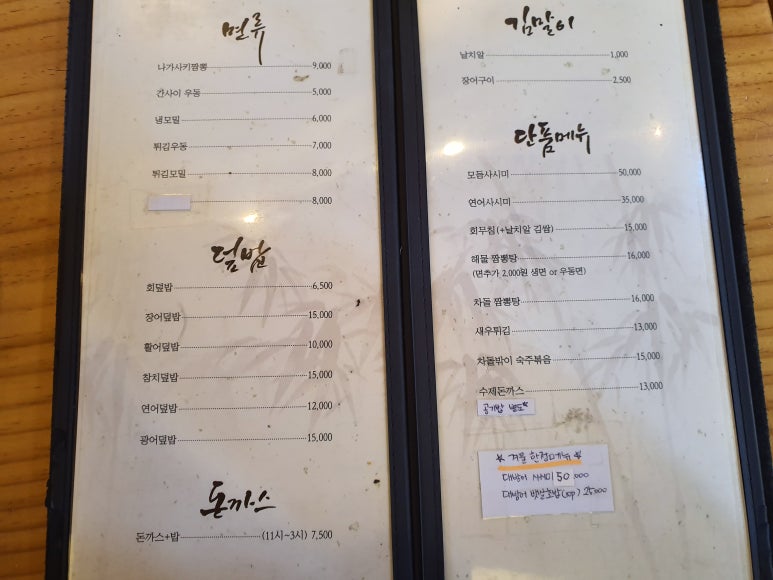 면류
나가사키짬뽕 9,000
간사이 우동 5,000
냉모밀 6,000
튀김우동 7,000
튀김모밀 8,000
8,000
덮밥
회덮밥 6,500
장어덮밥 15,000
활어덮밥 10,000
참치덮밥 15,000
연어덮밥 12,000
광어덮밥 15,000
돈까스
돈까스+밥 (11시~3시) 7,500
김말이
날치알 1,000
장어구이 2,500
단품메뉴
모듬사시미 50,000
연어사시미 35,000
회무침(+날치알 김쌈) 15,000
해물 짬뽕탕 16,000
(면추가 2,000원 생면 or 우동면)
차돌 짬뽕탕 16,000
새우튀김 13,000
차돌박이 숙주볶음 15,000
수제돈까스 13,000
공기밥 별도*
* 겨울 한정메뉴 *
대방어 사시미 50,000
대방어 (10p) 25,000